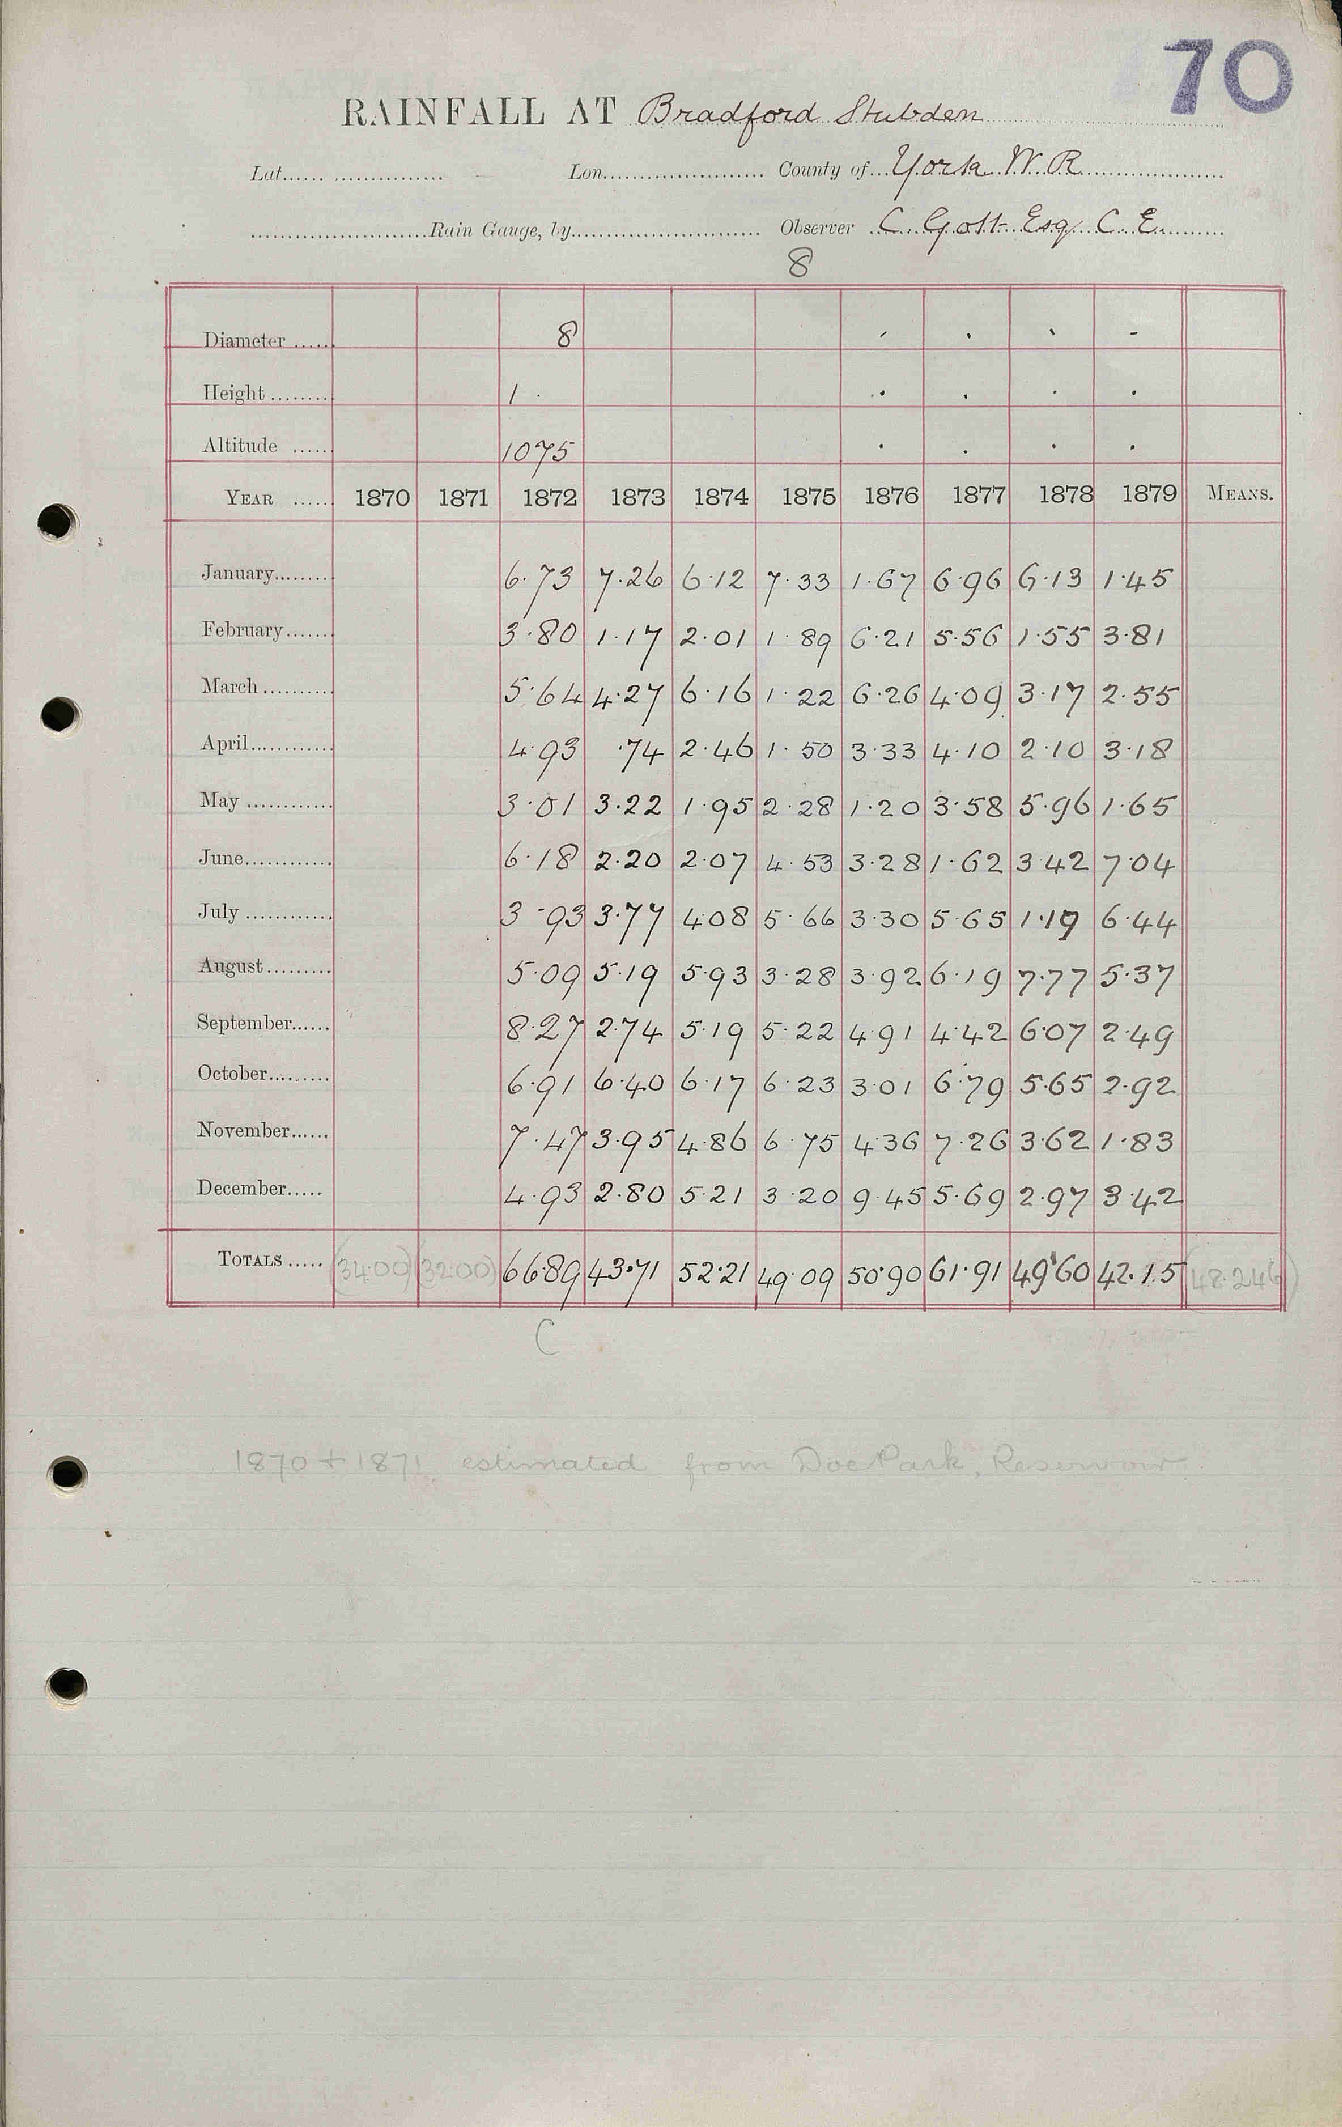 70
RAINFALL AT Bradford Stubden
Lat. Lon. County of York W. R.
Rain Gauge, by Observer C. Gott Esq. C. E.
8
Diameter 8 · · · -
Height 1 · · · · ·
Altitude 1075 · · · ·
YEAR 1870 1871 1872 1873 1874 1875 1876 1877 1878 1879 MEANS.
January 6.73 7.26 6.12 7.33 1.67 6.96 6.13 1.45
February 3.80 1.17 2.01 1.89 6.21 5.56 1.55 3.81
March 5.64 4.27 6.16 1.22 6.26 4.09 3.17 2.55
April 4.93 .74 2.46 1.50 3.33 4.10 2.10 3.18
May 3.01 3.22 1.95 2.28 1.20 3.58 5.96 1.65
June 6.18 2.20 2.07 4.53 3.28 1.62 3.42 7.04
July 3.93 3.77 4.08 5.66 3.30 5.65 1.19 6.44
August 5.09 5.19 5.93 3.28 3.92 6.19 7.77 5.37
September 8.27 2.74 5.19 5.22 4.91 4.42 6.07 2.49
October 6.91 6.40 6.17 6.23 3.01 6.79 5.65 2.92
November 7.47 3.95 4.86 6.75 4.36 7.26 3.62 1.83
December 4.93 2.80 5.21 3.20 9.45 5.69 2.97 3.42
TOTALS (34.00) (32.00) 66.89 43.71 52.21 49.09 50.90 61.91 49.60 42.15 (48.246)
C
1870 + 1871 estimated from Doe Park, Reservoir